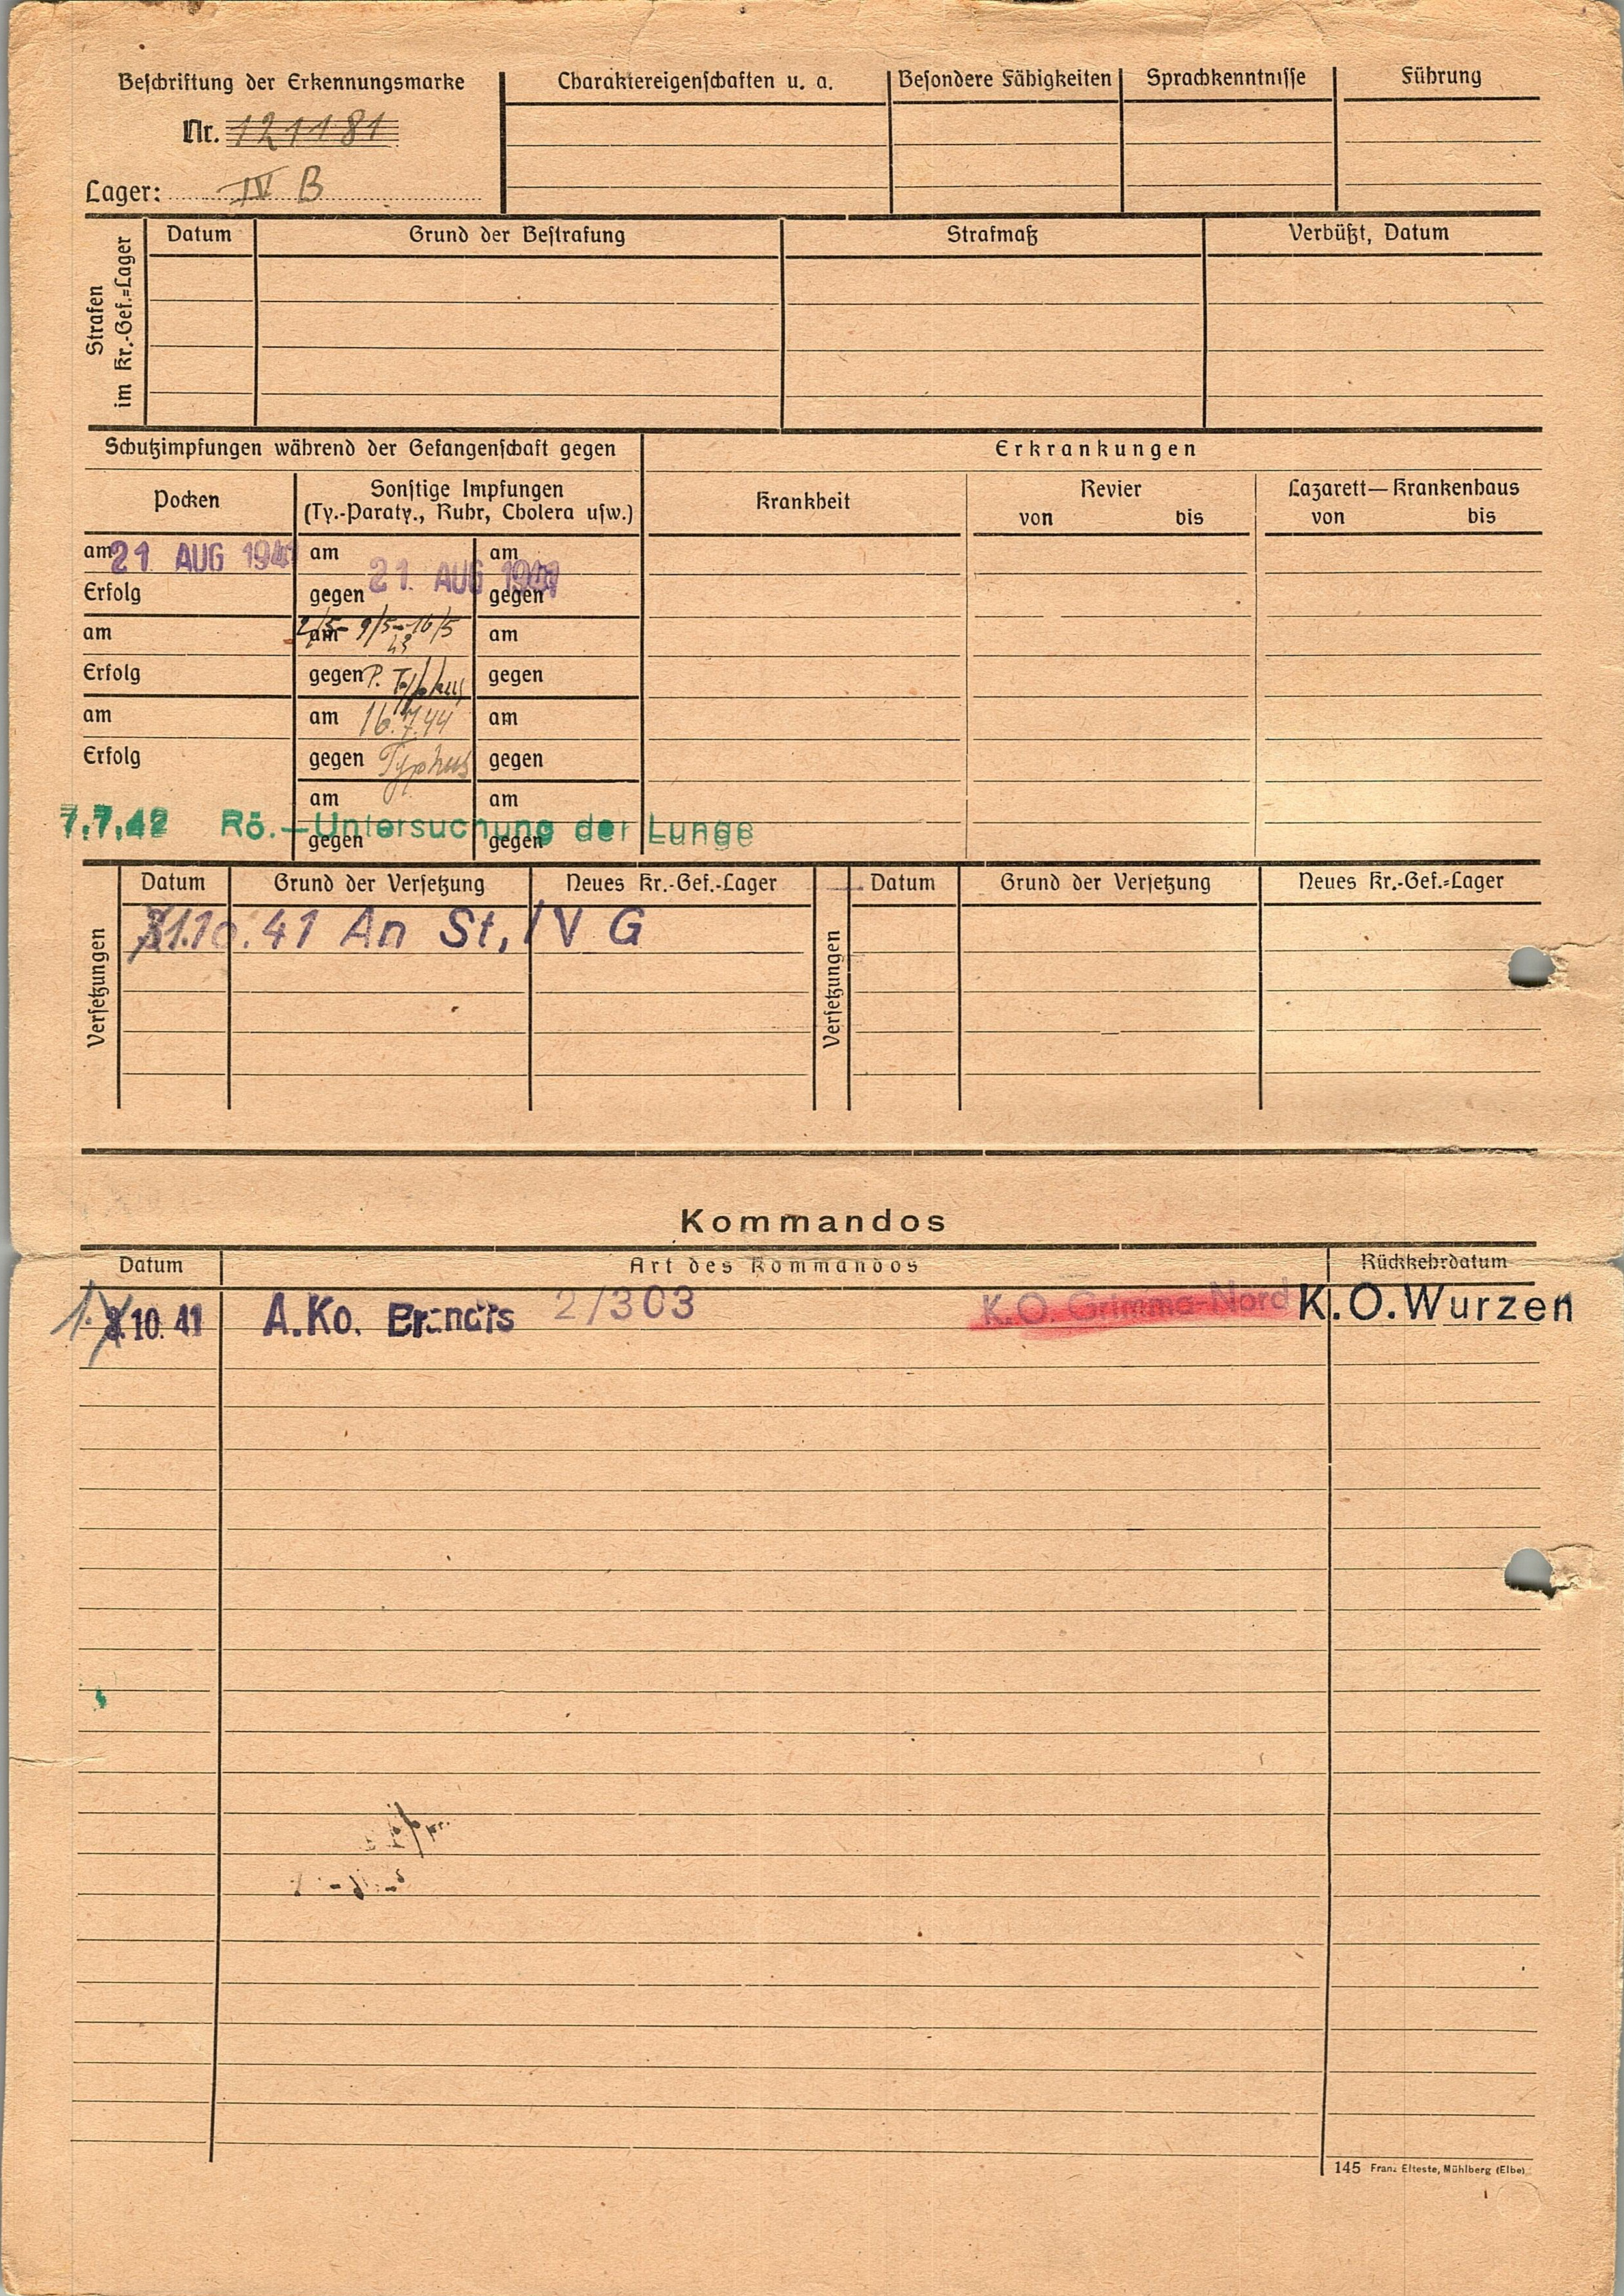 Beschriftung der Erkennungsmarke
Nr. 121181
Lager: IV B
Charaktereigenschaften u. a.
Besondere Fähigkeiten
Sprachkenntnisse
Führung
Strafen
im Kr.-Gef.=Lager
Datum
Grund der Bestrafung
Strafmaß
Verbüßt, Datum
Schutzimpfungen während der Gefangenschaft gegen
Erkrankungen
Pocken
Sonstige Impfungen
(Ty.-Paraty., Ruhr, Cholera usw.)
Krankheit
Revier
von bis
Lazarett—Krankenhaus
von bis
am 21 AUG 1941 am am
21. AUG 1941
Erfolg gegen gegen
am am 2/5- 9/5-16/5 am
43
Erfolg gegen P. Typhus gegen
am am 16.7.44 am
Erfolg gegen Typhus gegen
am am
7.7.42 Rö.—Untersuchung der Lunge
gegen gegen
Versetzungen
Datum Grund der Versetzung Neues Kr.-Gef.-Lager
1.10.41 An St. IV G
Versetzungen
Datum Grund der Versetzung Neues Kr.-Gef.=Lager
Kommandos
Datum Art des Kommandos Rückkehrdatum
1. 10. 41 A.Ko. 2/303 K.O. Grimma-Nord K.O. Wurzen
145 Franz Elteste, Mühlberg (Elbe)